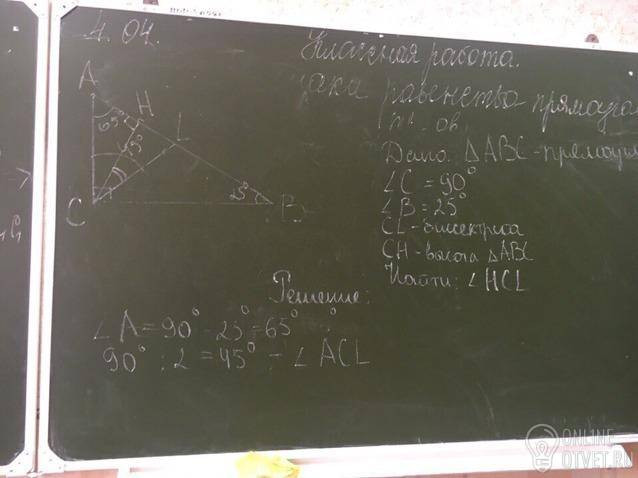 4.04.
Классная работа.
знака равенства прямоуго
Дано: △ABC - прямоуг
∠C = 90°
∠B = 25°
CL - биссектриса
CH - высота △ABC
Найти: ∠HCL
A
H
65°
L
45°
C
25°
B
Решение:
∠A = 90° - 25° = 65°
90° : 2 = 45° - ∠ACL
ONLINE
OTVET.RU